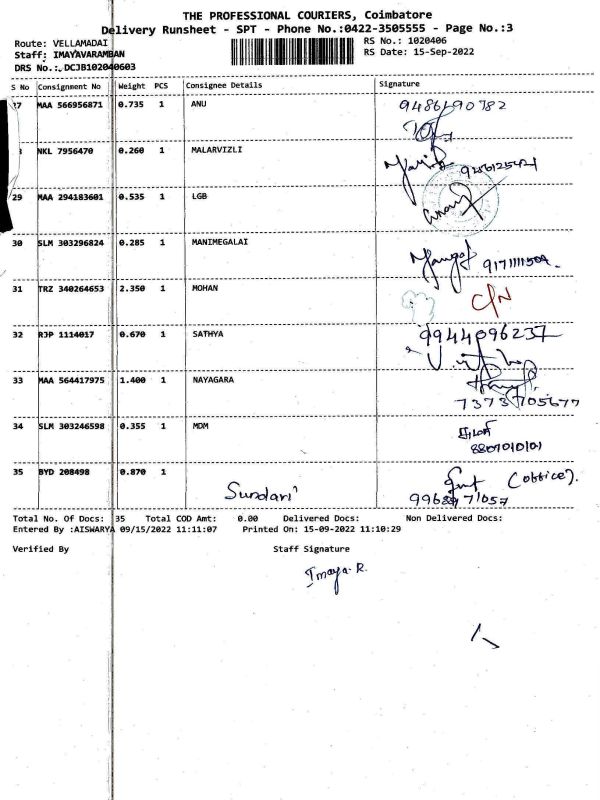 THE PROFESSIONAL COURIERS, Coimbatore
Delivery Runsheet - SPT - Phone No.:0422-3505555 - Page No.:3
Route: VELLAMADAI RS No.: 1020406
Staff: IMAYAVARAMBAN RS Date: 15-Sep-2022
DRS No.:.DCJB102040603
S No Consignment No Weight PCS Consignee Details Signature
MAA 566956871 0.735 1 ANU
NKL 7956470 0.260 1 MALARVIZLI
29 MAA 294183601 0.535 1 LGB
30 SLM 303296824 0.285 1 MANIMEGALAI
31 TRZ 340264653 2.350 1 MOHAN C/N
32 RJP 1114017 0.670 1 SATHYA 9944096237
33 MAA 564417975 1.400 1 NAYAGARA
7373705677
34 SLM 303246598 0.355 1 MDM
35 BYD 208498 0.870 1
Sundari (office).
Total No. Of Docs: 35 Total COD Amt: 0.00 Delivered Docs: Non Delivered Docs:
Entered By :AISWARYA 09/15/2022 11:11:07 Printed On: 15-09-2022 11:10:29
Verified By Staff Signature
Imaya. R.